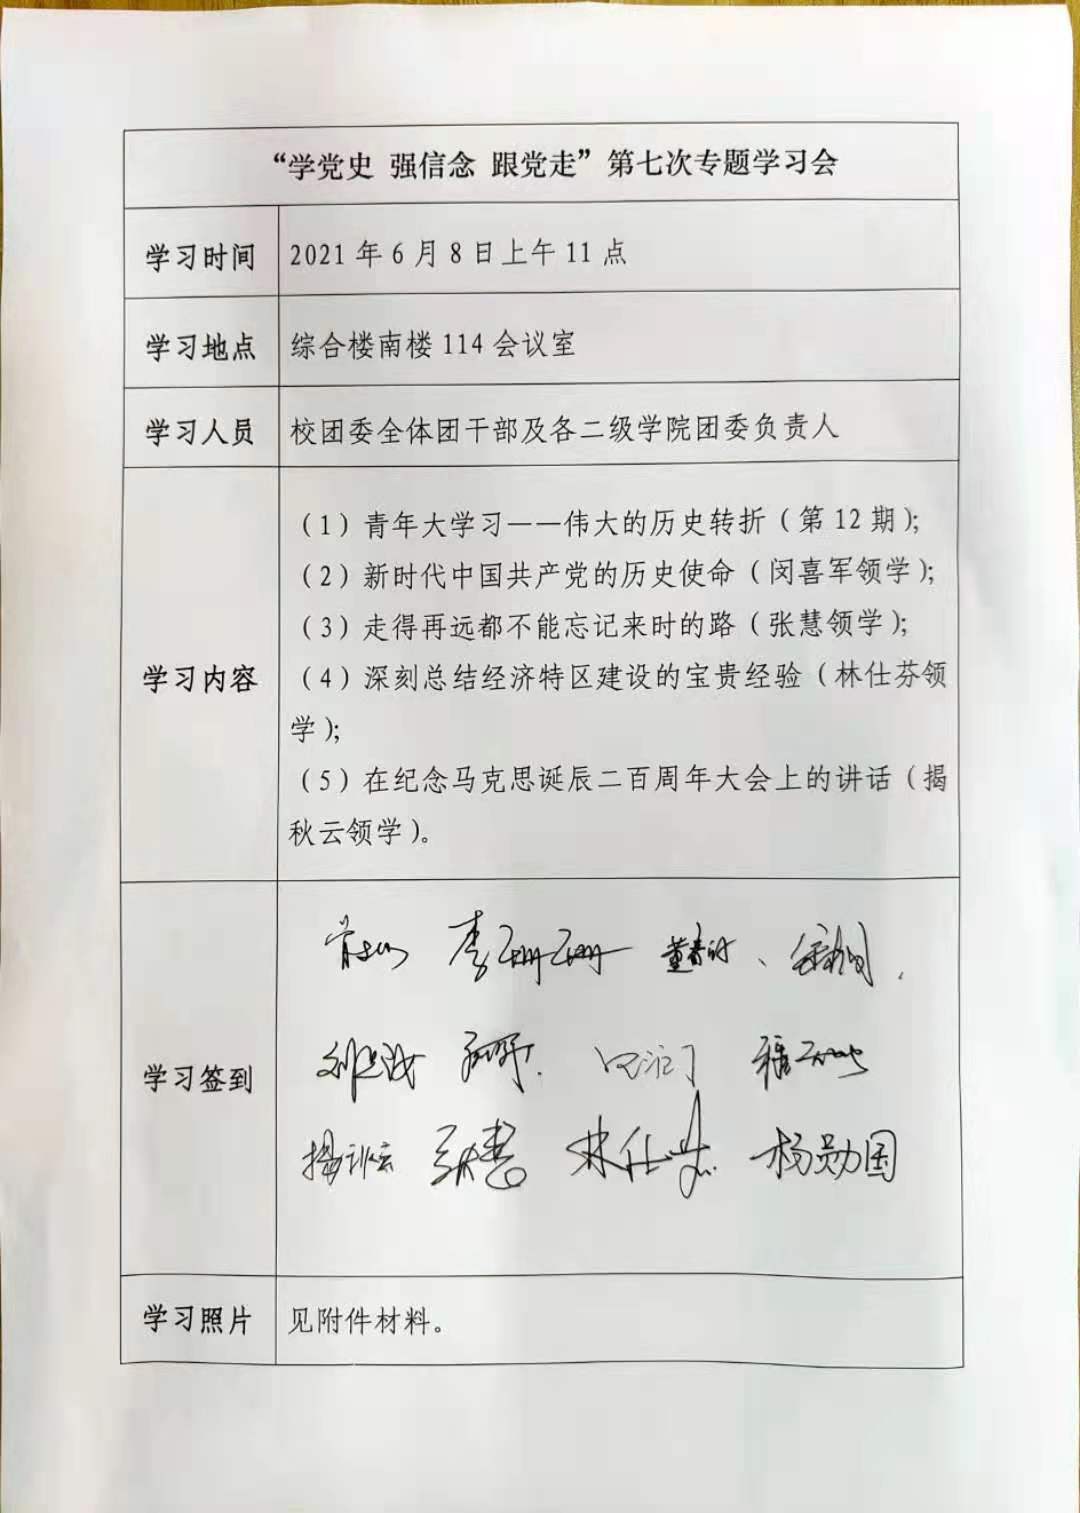 “学党史 强信念 跟党走”第七次专题学习会
学习时间
2021 年 6 月 8 日上午 11 点
学习地点
综合楼南楼 114 会议室
学习人员
校团委全体团干部及各二级学院团委负责人
学习内容
（1）青年大学习——伟大的历史转折（第 12 期）；
（2）新时代中国共产党的历史使命（闵喜军领学）；
（3）走得再远都不能忘记来时的路（张慧领学）；
（4）深刻总结经济特区建设的宝贵经验（林仕芬领
学）；
（5）在纪念马克思诞辰二百周年大会上的讲话（揭
秋云领学）。
学习签到
李珊珊
揭秋云 张慧 林仕芬 杨勋国
学习照片
见附件材料。